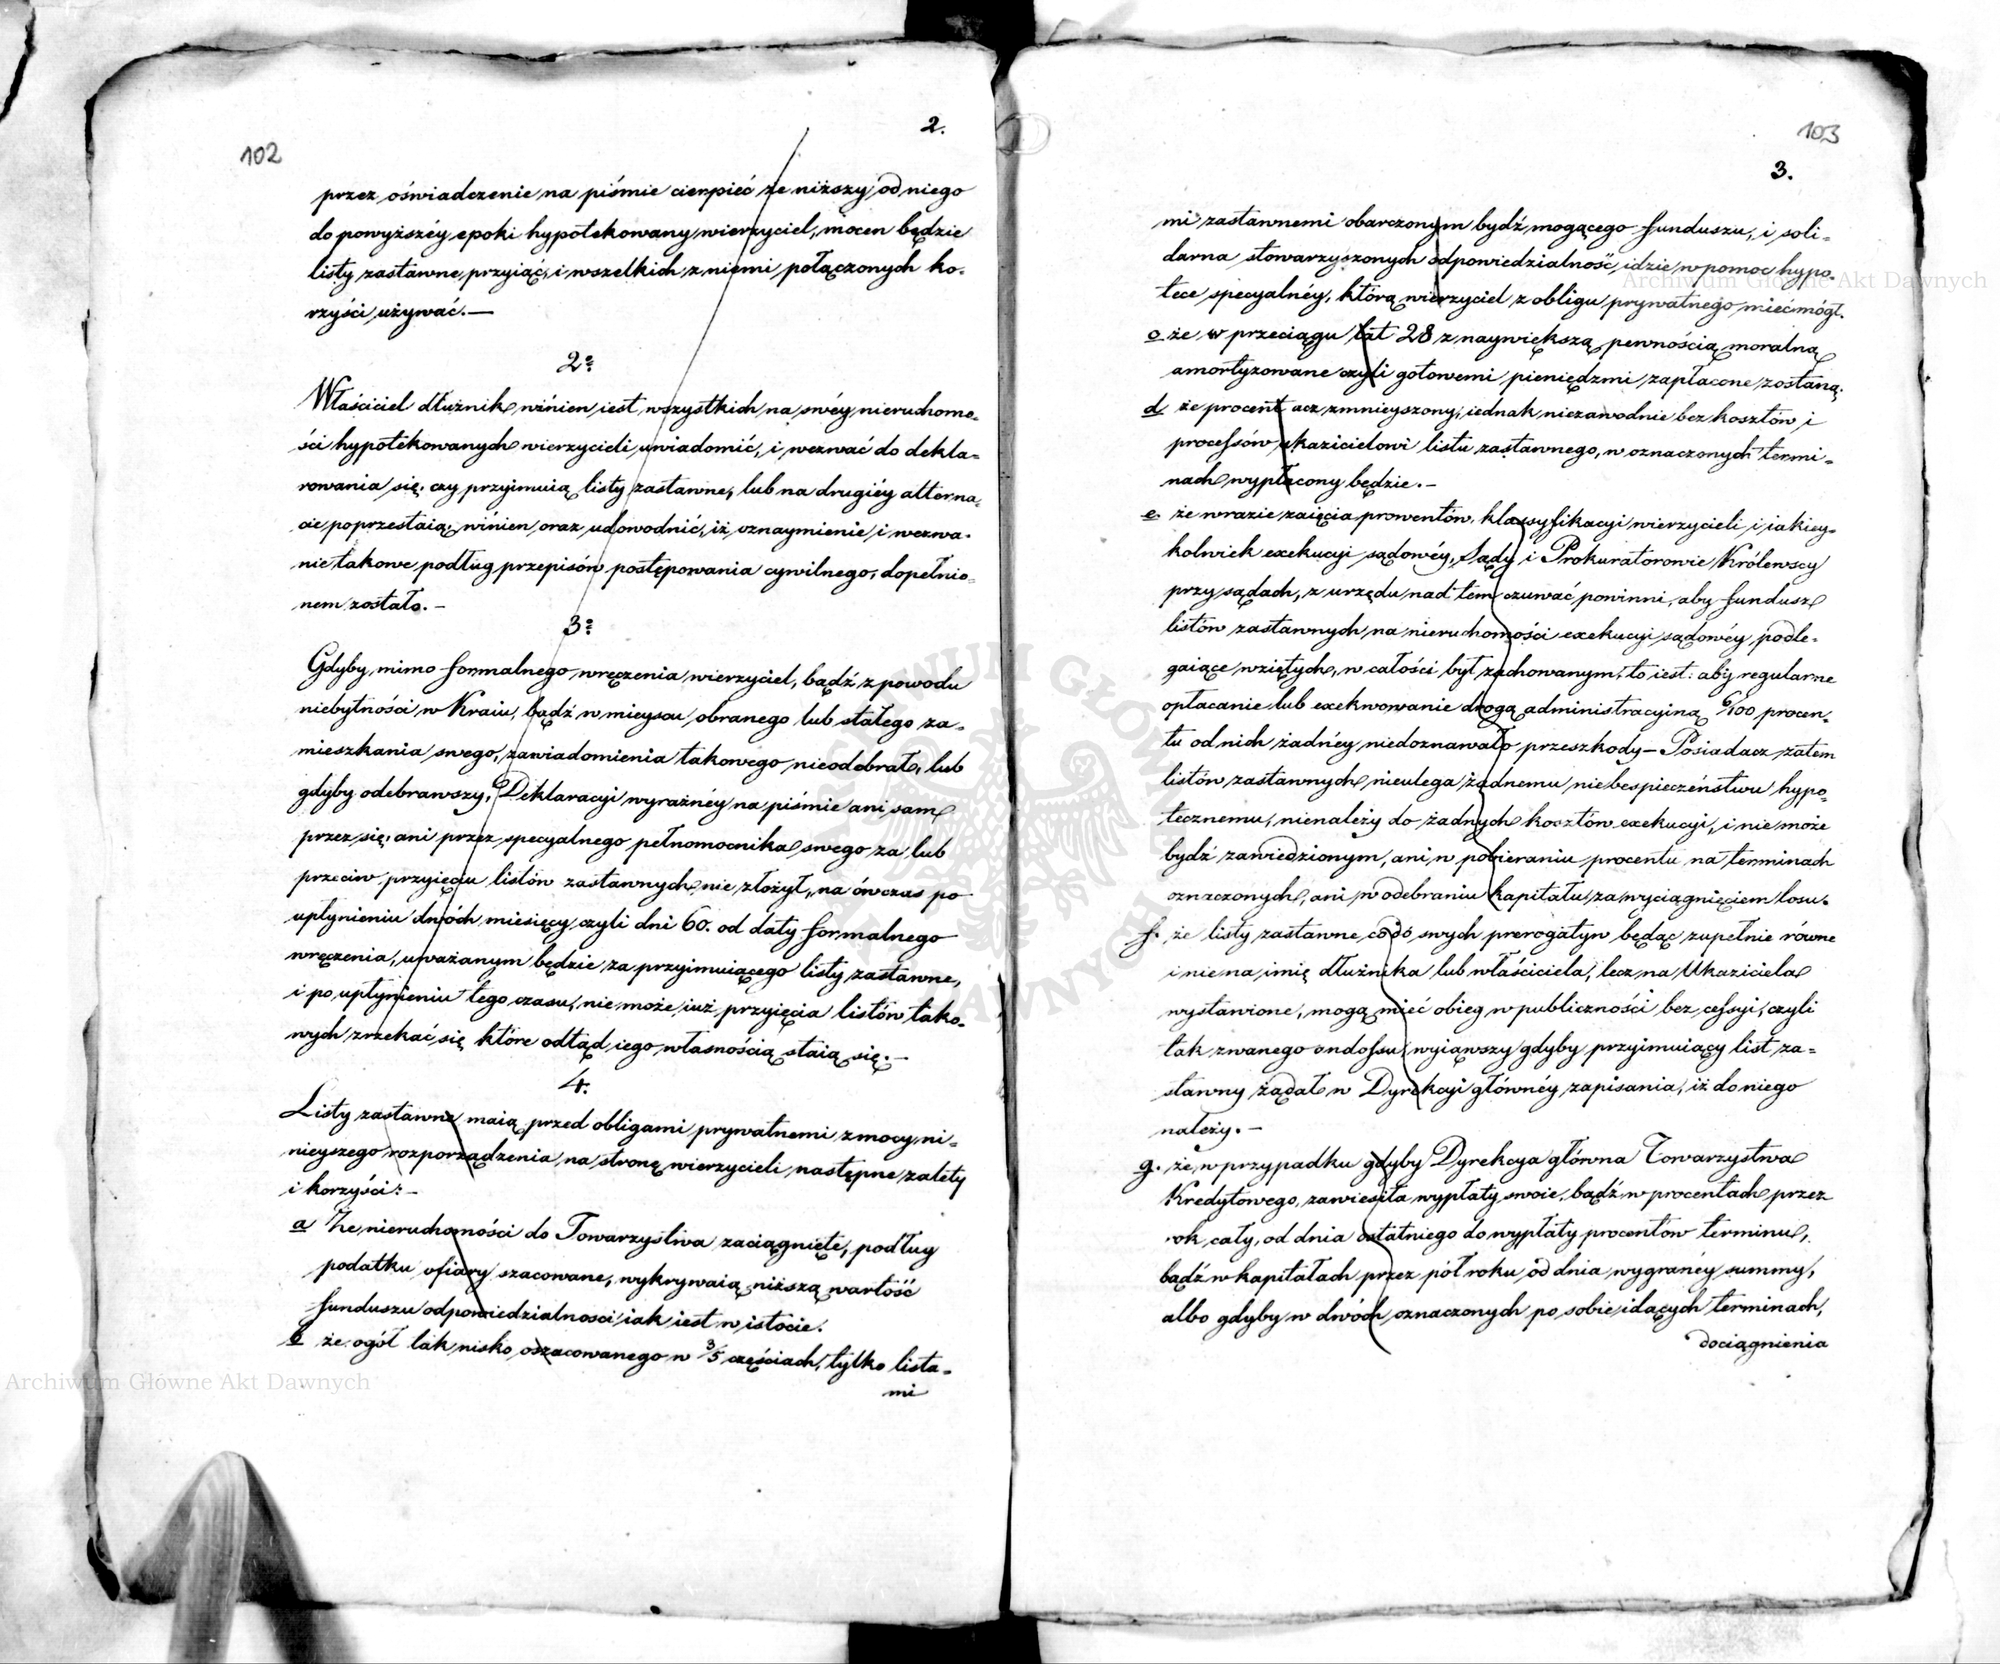 102
2.
przez oświadczenie na piśmie cierpieć że niższy od niego
do powyższéy epoki hypotekowany wierzyciel, mocen będzie
listy zastawne przyiąć, i wszelkich z niemi połączonych ko-
rzyści używać.—
2º
Właściciel dłużnik winien iest wszystkich na swéy nieruchomo-
ści hypotekowanych wierzycieli uwiadomić, i wezwać do dekla-
rowania się, czy przyimuią listy zastawne, lub na drugiéy alterna-
cie poprzestaią; winien oraz udowodnić, iż oznaymienie i wezwa-
nie takowe podług przepisów postępowania cywilnego, dopełnio-
nem zostało.—
3º
Gdyby mimo formalnego wręczenia wierzyciel, bądź z powodu
niebytności w Kraiu, bądź w mieyscu obranego lub stałego za-
mieszkania swego, zawiadomienia takowego nieodebrał, lub
gdyby odebrawszy, Deklaracyi wyraźnéy na piśmie ani sam
przez się, ani przez specyalnego pełnomocnika swego za lub
przeciw przyięciu listów zastawnych nie złożył, na ówczas po
upłynieniu dwóch miesięcy czyli dni 60. od daty formalnego
wręczenia, uważanym będzie za przyimuiącego listy zastawne,
i po upłynieniu tego czasu, nie może iuż przyięcia listów tako-
wych zrzekać się które odtąd iego własnością staią się.—
4.
Listy zastawne maią przed obligami prywatnemi z mocy ni-
nieyszego rozporządzenia na stronę wierzycieli następne zalety
i korzyści:—
a Że nieruchomości do Towarzystwa zaciągnięte, podług
podatku ofiary szacowane, wykrywaią niższą wartość
funduszu odpowiedzialnosci iak iest w istocie.
b że ogół tak nisko oszacowanego w 3/5 częściach, tylko lista-
mi
103
3.
mi zastawnemi obarczonym bydź mogącego funduszu, i soli-
darna stowarzyszonych odpowiedzialność, idzie w pomoc hypo-
tece specyalnéy, którą wierzyciel z obligu prywatnego mieć mógł.
c że w przeciągu lat 28 z naywiększą pewnością moralną
amortyzowane czyli gotowemi pieniędzmi zapłacone zostaną.
d że procent acz zmnieyszony, iednak niezawodnie bez kosztów i
processów okazicielowi listu zastawnego, w oznaczonych termi-
nach wypłacony będzie.—
e. że w razie zaięcia prowentów, klassyfikacyi wierzycieli i iakiey-
kolwiek exekucyi sądowéy, Sądy i Prokuratorowie Królewscy
przy sądach, z urzędu nad tem czuwać powinni, aby fundusz
listów zastawnych na nieruchomości exekucyi sądowéy podle-
gaiące wziętych, w całości był zachowanym, to iest: aby regularne
opłacanie lub exekwowanie drogą administracyiną 6/100 procen-
tu od nich żadnéy niedoznawało przeszkody— Posiadacz zatem
listów zastawnych nieulega żadnemu niebespieczeństwu hypo-
tecznemu, nienależy do żadnych kosztów exekucyi, i nie może
bydź zawiedzionym, ani w pobieraniu procentu na terminach
oznaczonych, ani w odebraniu kapitału za wyciągnięciem losu.
f. że listy zastawne codó swych prerogatyw będąc zupełnie równe
i nie na imię dłużnika lub właściciela, lecz na Ukaziciela
wystawione, mogą mieć obieg w publiczności bez cessyi, czyli
tak zwanego endossu, wyiąwszy gdyby przyimuiący list za-
stawny żądał w Dyrekcyi głównéy zapisania, iż do niego
należy.—
g. że, w przypadku gdyby Dyrekcya główna Towarzystwa
Kredytowego, zawiesiła wypłaty swoie, bądź w procentach przez
rok cały, od dnia ostatniego do wypłaty procentów terminu,
bądź w kapitałach przez pół roku od dnia wygranéy summy,
albo gdyby w dwóch oznaczonych po sobie idących terminach,
dociągnienia
Archiwum Główne Akt Dawnych
Archiwum Główne Akt Dawnych